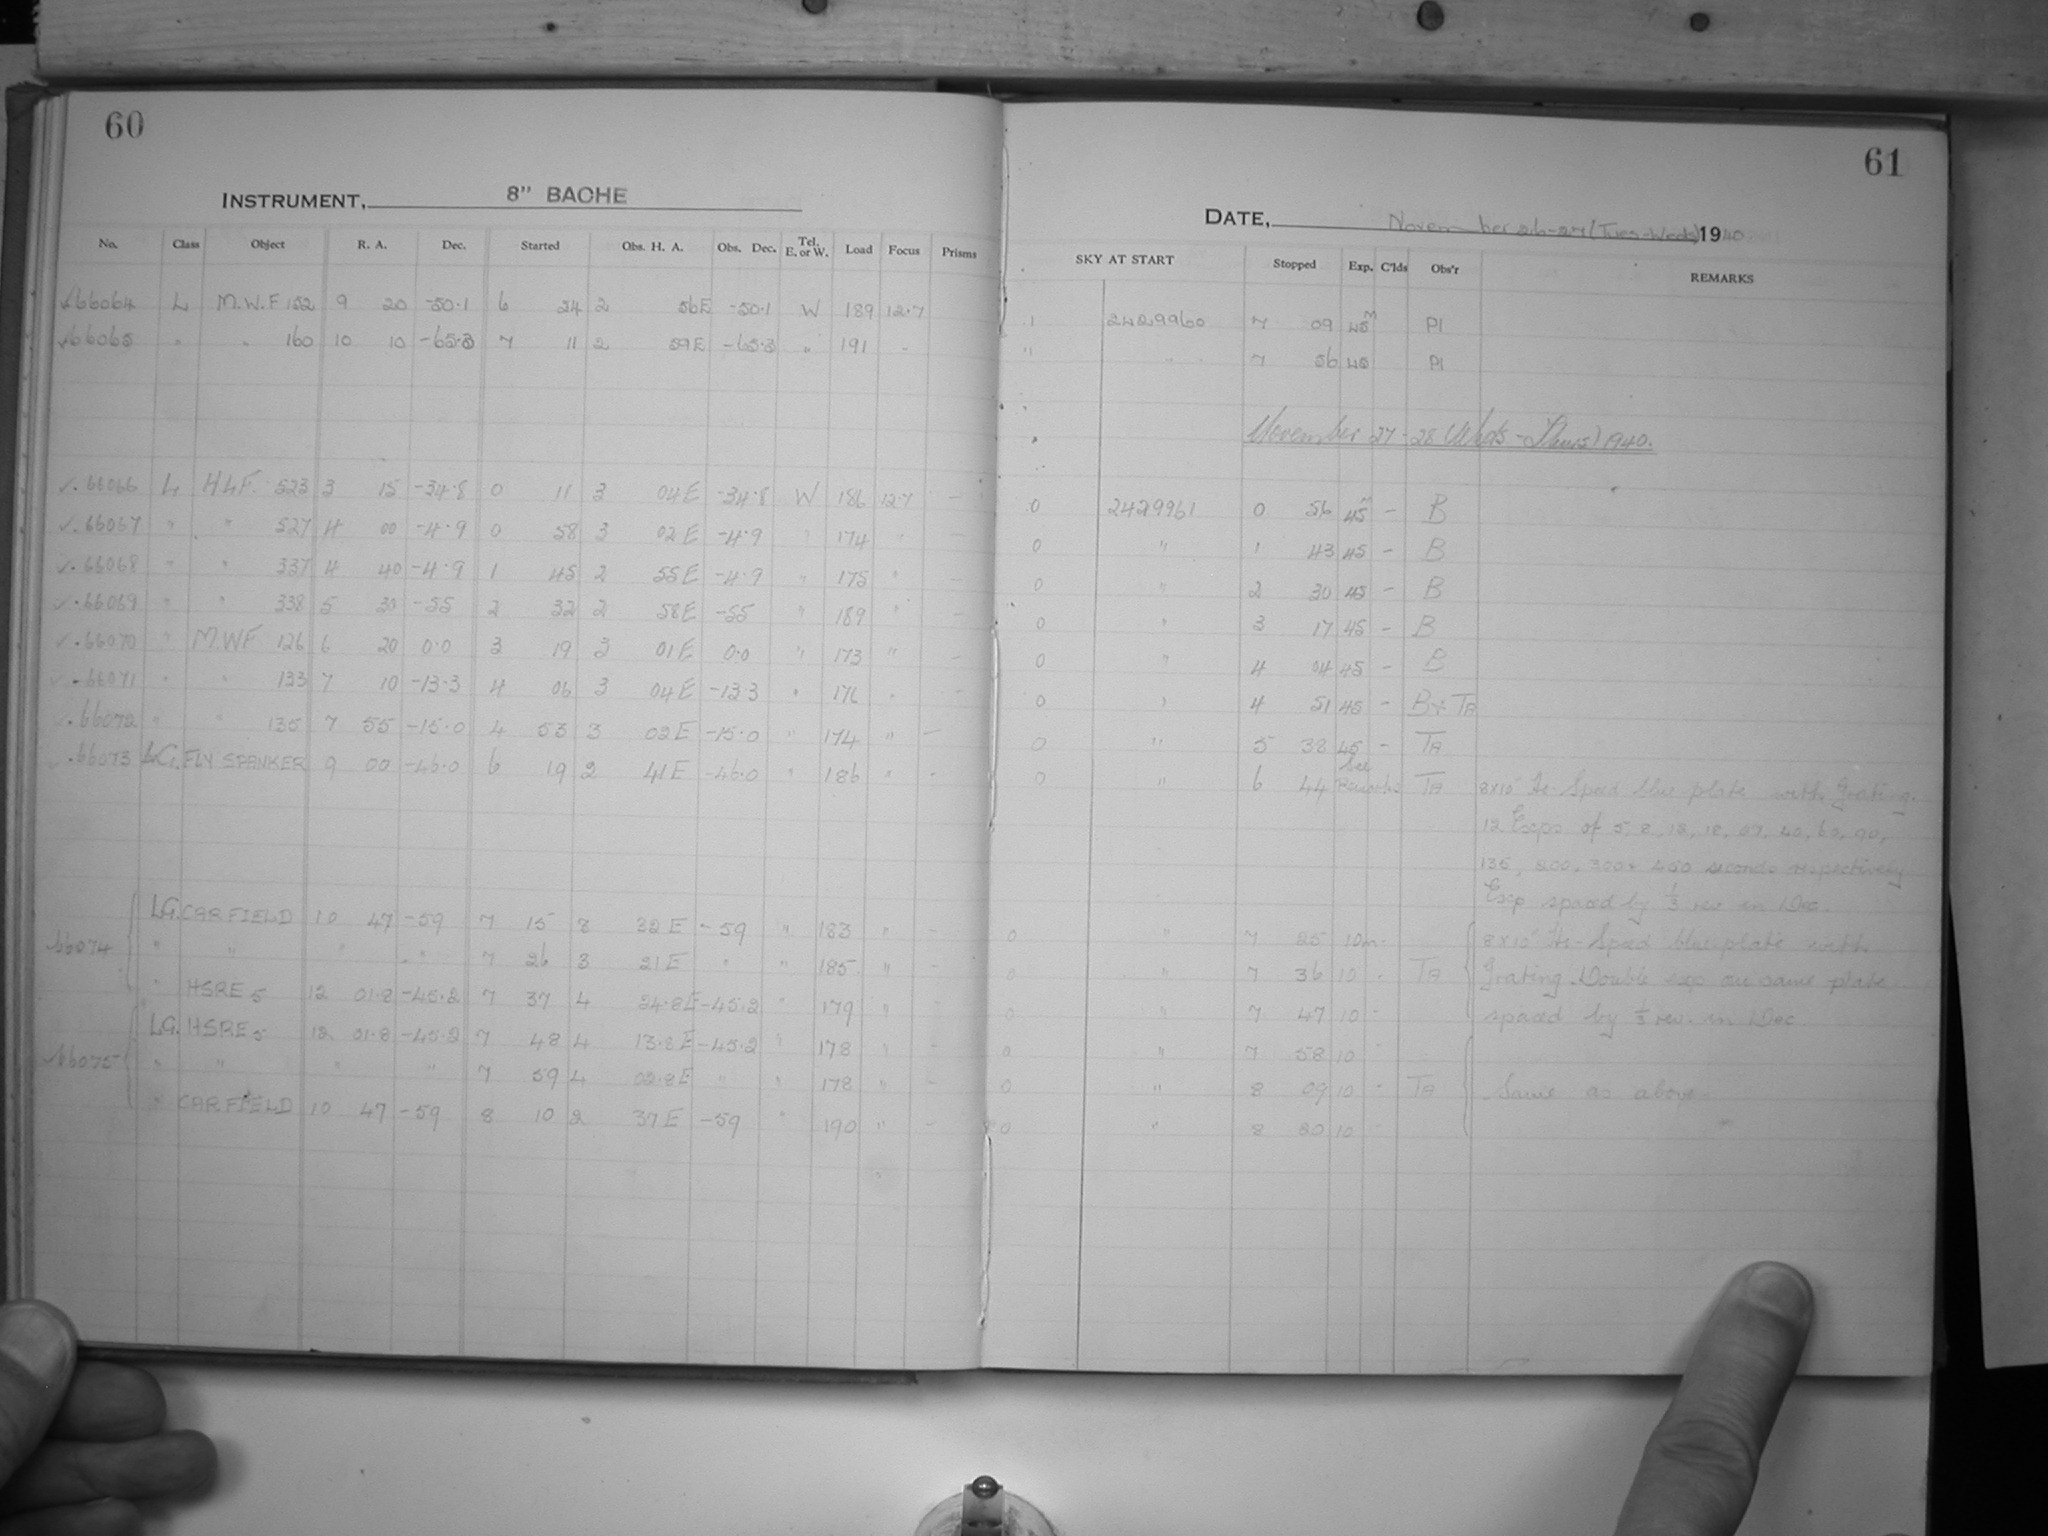 60
INSTRUMENT, 8" BACHE
No. Class Object R. A. Dec. Started Obs. H. A. Obs. Dec. Tel. E. or W. Load Focus Prisms
66064 L M.W.F 152 9 20 -50.1 6 24 2 56E -50.1 W 189 12.7
66065 " " 160 10 10 -65.3 7 11 2 59E -65.3 " 191 -
66066 L HLF. 523 3 15 -34.8 0 11 3 04E -34.8 W 186 12.7 -
66067 " " 527 4 00 -4.9 0 58 3 02E -4.9 " 174 " -
66068 " " 337 4 40 -4.9 1 45 2 55E -4.9 " 175 " -
66069 " " 338 5 30 -55 2 32 2 58E -55 " 189 " -
66070 " M.WF 126 6 20 0.0 3 19 3 01E 0.0 " 173 " -
66071 " " 133 7 10 -13.3 4 06 3 04E -13.3 " 176 " -
66072 " " 135 7 55 -15.0 4 53 3 02E -15.0 " 174 " -
66073 LG. FLY SPANKER 9 00 -46.0 6 19 2 41E -46.0 " 186 " -
66074 LG. CAR FIELD 10 47 -59 7 15 3 32E -59 " 183 " -
" " " " 7 26 3 21E " " 185 " -
" HSRE 5 12 01.8 -45.2 7 37 4 24.8E -45.2 " 179 " -
66075 LG. HSRE 5 12 01.8 -45.2 7 48 4 13.8E -45.2 " 178 " -
" " " " 7 59 4 02.8E " " 178 " -
" CAR FIELD 10 47 -59 8 10 2 37E -59 " 190 " -
61
DATE, November 26-27 (Tues-Weds) 1940
SKY AT START Stopped Exp. C'lds Obs'r REMARKS
1 2429960 7 09 45m PI
" " 7 56 45 PI
November 27-28 (Weds-Thurs) 1940.
0 2429961 0 56 45m - B
0 " 1 43 45 - B
0 " 2 30 45 - B
0 " 3 17 45 - B
0 " 4 04 45 - B
0 " 4 51 45 - B + TA
0 " 5 38 45 - TA
0 " 6 44 See Remarks TA 8x10" Hi-Speed blue plate with Grating.
12 Exps of 5, 8, 12, 18, 27, 40, 60, 90,
135, 200, 300 + 450 seconds respectively
Exp spaced by 1/3 rev in Dec.
0 " 7 25 10m - 8x10" Hi-Speed blue plate with
0 " 7 36 10 - TA Grating. Double exp on same plate
0 " 7 47 10 - spaced by 1/3 rev. in Dec
0 " 7 58 10 -
0 " 8 09 10 - TA Same as above.
0 " 8 20 10 -